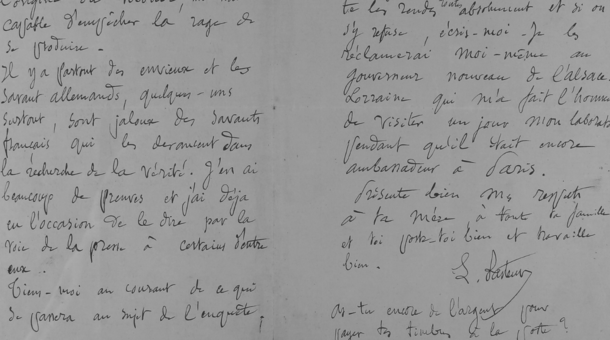 capable d'empêcher la rage de
se produire.
Il y a partout des envieux et les
savant allemands, quelques-uns
surtout, sont jaloux des savants
français qui les devancent dans
la recherche de la vérité. J'en ai
beaucoup de preuves et j'ai déjà
eu l'occasion de le dire par la
voie de la presse à certains d'entre
eux..
Tiens-moi au courant de ce qui
se passera au sujet de l'enquête,
te les rendes toutes absolument et si on
s'y refuse, écris-moi. Je les
réclamerai moi-même au
gouverneur nouveau de l'Alsace
Lorraine qui m'a fait l'honneur
de visiter un jour mon laborat
pendant qu'il était encore
ambassadeur à Paris.
Présente bien mes respects
à ta mère, à toute ta famille
et toi porte-toi bien et travaille
bien.
L. Pasteur
as-tu encore de l'argent pour
payer tes timbres à la poste?